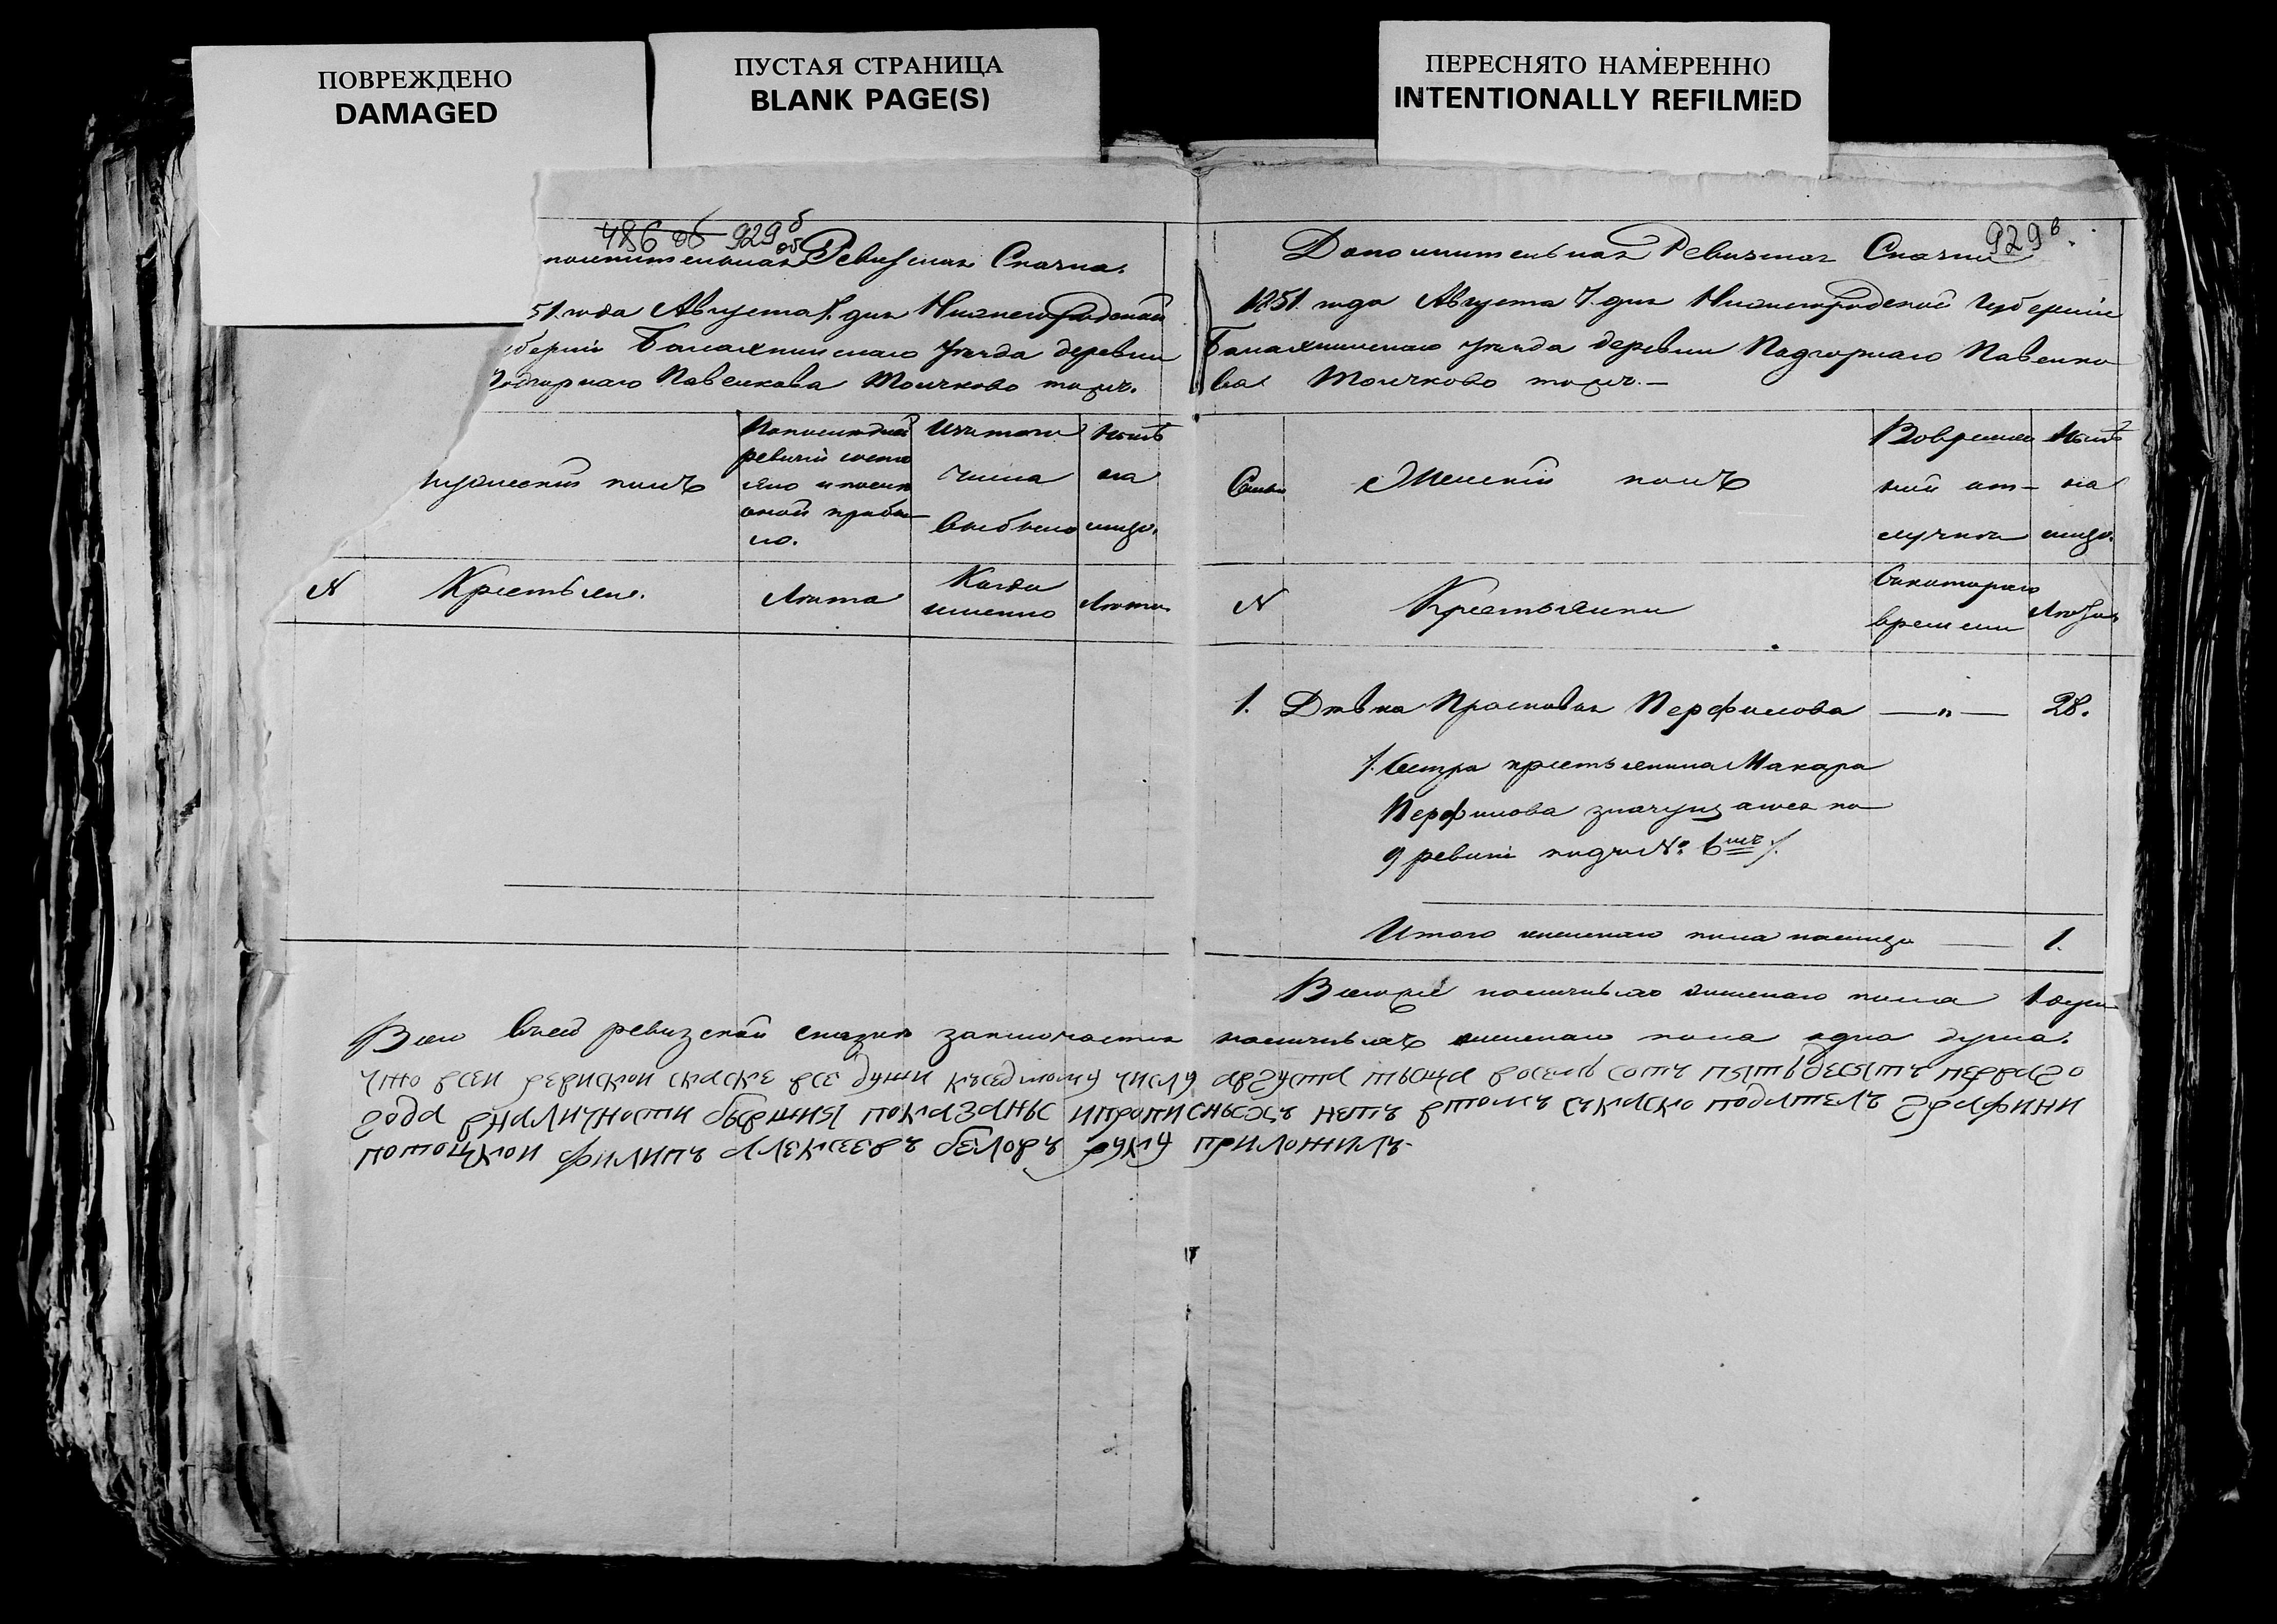 ПОВРЕЖДЕНО
DAMAGED
ПУСТАЯ СТРАНИЦА
BLANK PAGE(S)
ПЕРЕСНЯТО НАМЕРЕННО
INTENTIONALLY REFILMED
486 об 929 б об
полнительная Ревизская Сказка.
51. года Августа 7. дня Нижегородской
уберніи Балахнинскаго уѣзда деревни
Подгорнаго Павенкова Толчково тожъ.
мужескій полъ
По последней ревизіи состояло и после оной прибыло.
Изъ того числа выбыло
Нынѣ на лицо.
N
Крестьяне.
Лѣта
Когда именно
Лѣта
929 в.
Дополнительная Ревизская Сказка
1851. года Августа 7. дня Нижегородской Губерніи
Балахнинскаго уѣзда деревни Подгорнаго Павенко
ва Толчково тожъ.
Семьи
Женскій полъ
Во временной отлучкѣ
Нынѣ на лицо.
N
Крестьянки
Съ котораго времени
Лѣта
1. Дѣвка Просковья Перфилова — „ — 28.
/. Сестра крестьянина Макара
Перфилова значущаяся по
9 ревизіи подъ № 6мъ /.
Итого женскаго пола налицо — 1.
Всего наличныхъ женскаго пола 1 душа
Всего в сей ревизской сказкѣ заключается наличныхъ женскаго пола одна душа.
что всей ревиской скаске все души кседмому числу августа тысща восемь сотъ пятьдесятъ перваго
года вналичности бывшия показаны ипрописныхъ нетъ втомъ скаско подателъ графини
Филипъ Алексеевъ Беловъ руку приложилъ